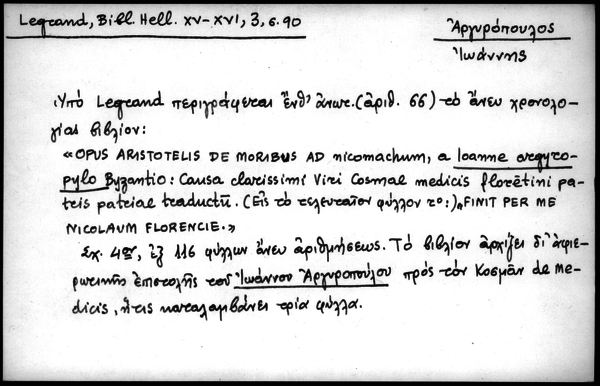 Legrand, Bibl. Hell. XV-XVI, 3, σ. 90
Ἀργυρόπουλος
Ἰωάννης
Ὑπό Legrand περιγράφεται ἔνθ' ἀνωτ. (ἀριθ. 66) τὸ ἄνευ χρονολο-
γίας βιβλίον:
«OPUS ARISTOTELIS DE MORIBUS AD nicomachum, a Ioanne argyro-
pylo Byzantio: Causa clarissimi Viri Cosmae medicis florētini pa-
tris patriae traductū. (Εἰς τὸ τελευταῖον φύλλον το:) „FINIT PER ME
NICOLAUM FLORENCIE.»
Σχ. 4ον, ἐξ 116 φύλλων ἄνευ ἀριθμήσεως. Τὸ βιβλίον ἀρχίζει δι' ἀφιε-
ρωτικῆς ἐπιστολῆς τοῦ Ἰωάννου Ἀργυροπούλου πρὸς τὸν Κοσμᾶν de Me-
dicis, ἥτις καταλαμβάνει τρία φύλλα.